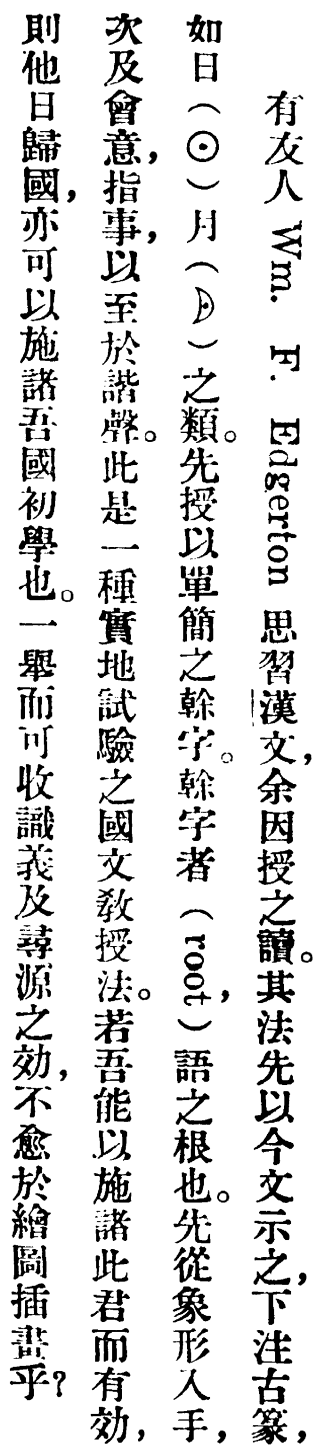 有友人 Wm. F. Edgerton 思習漢文，余因授之讀。其法先以今文示之，下注古篆，
如日（⊙）月（）之類。先授以單簡之榦字。榦字者（root），語之根也。先從象形入手，
次及會意，指事，以至於諧聲。此是一種實地試驗之國文教授法。若吾能以施諸此君而有効，
則他日歸國，亦可以施諸吾國初學也。一舉而可收識義及尋源之効，不愈於繪圖插畫乎？